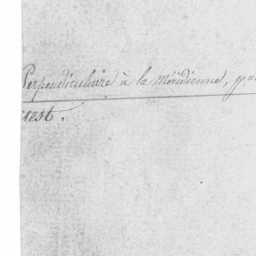 Perpendiculaire à la méridienne,
uest.